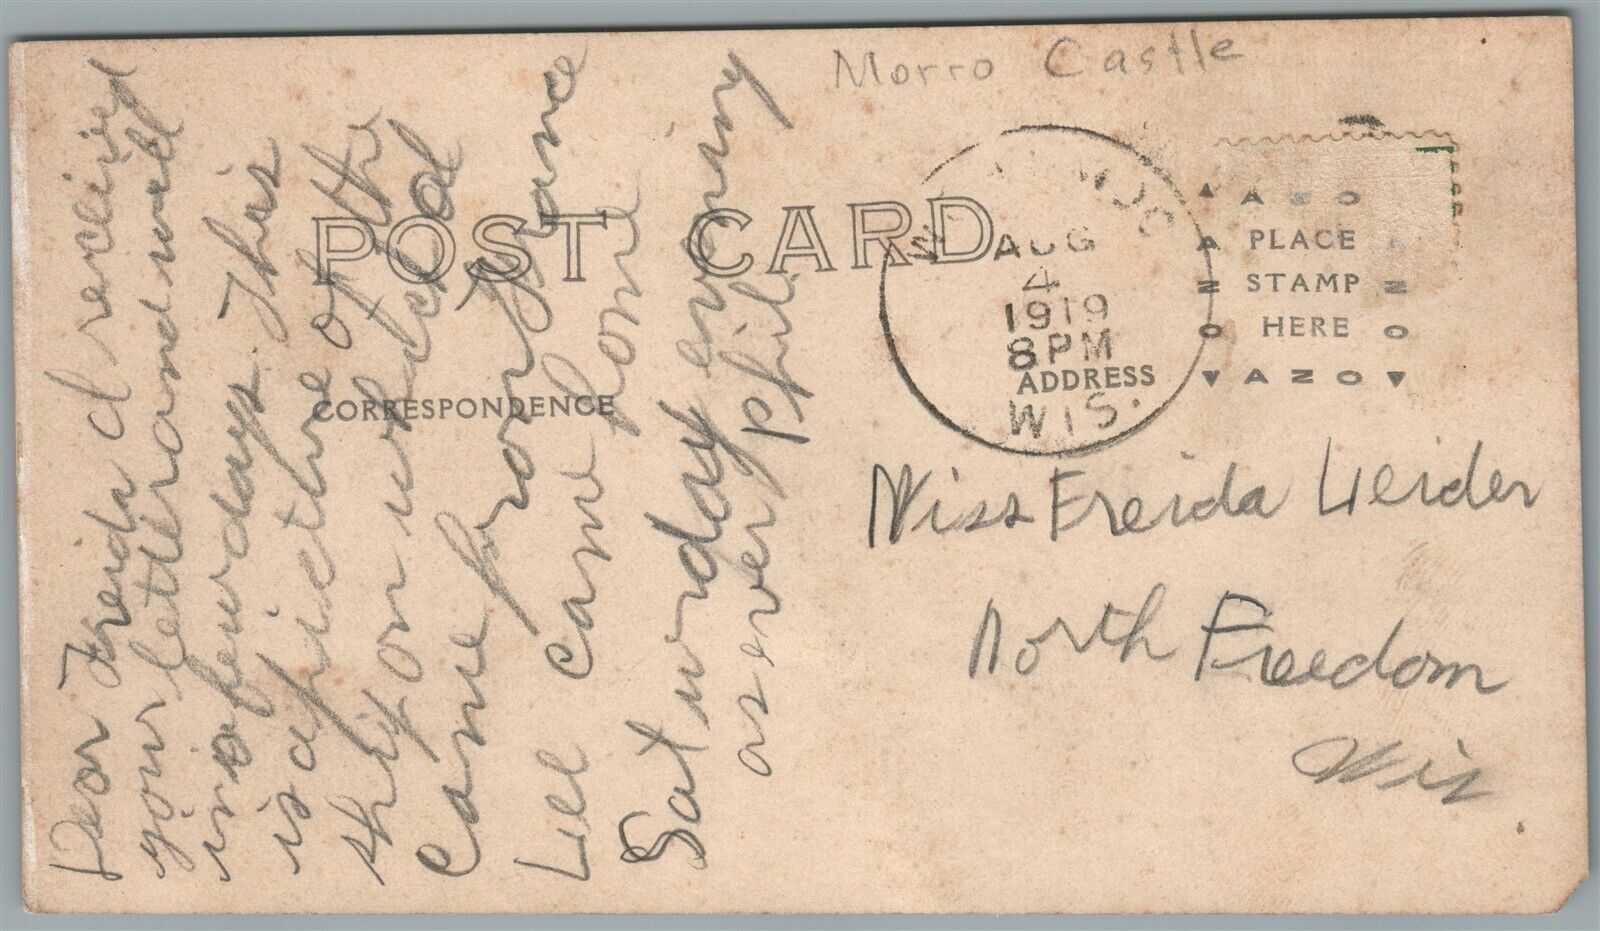 Morro Castle
POST CARD
CORRESPONDENCE
ADDRESS
AUG
4
1919
8 PM
WIS.
AZO
PLACE
STAMP
HERE
AZO
Dear Freida I received
your letter and will
in a few days. This
is a picture of the
ship on which
came from France
came home
Saturday evening
as ever Phil.
Miss Freida
North Freedom
Wis.